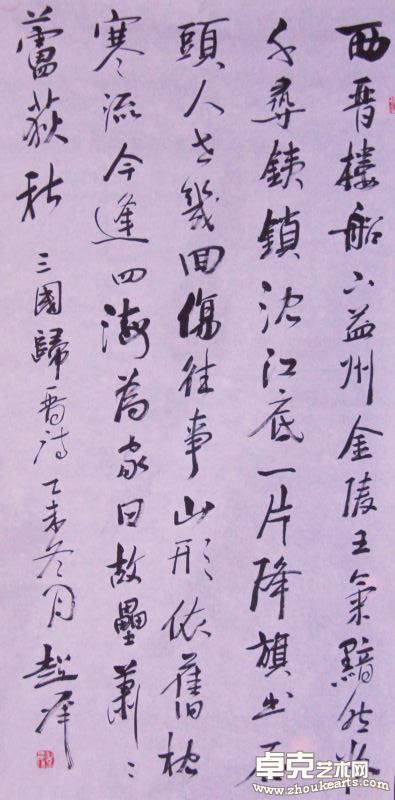 西晋樓船下益州金陵王氣黯然收
千尋銕鎖沈江底一片降旗出石
頭人世幾回傷往事山形依舊枕
寒流今逢四海為家日故壘蕭〻
蘆荻秋 三國歸晋詩 乙未冬月
卓克艺术网
www.zhoukearts.com